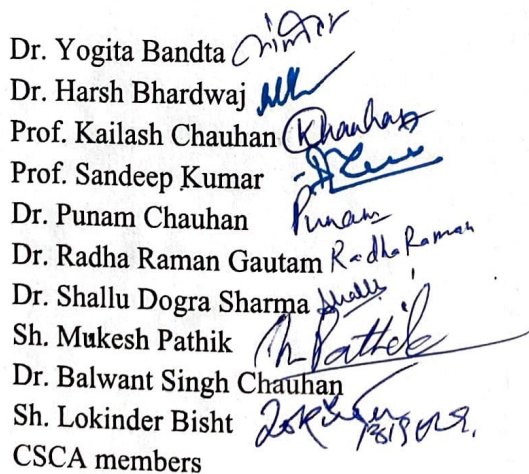 Dr. Yogita Bandta
Dr. Harsh Bhardwaj
Prof. Kailash Chauhan Khauhan
Prof. Sandeep Kumar
Dr. Punam Chauhan Punam
Dr. Radha Raman Gautam Radha Raman
Dr. Shallu Dogra Sharma Shallu
Sh. Mukesh Pathik M Pathik
Dr. Balwant Singh Chauhan
Sh. Lokinder Bisht
CSCA members